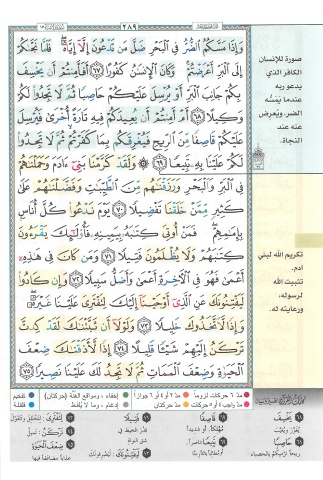 ٢٨٩
وَإِذَا مَسَّكُمُ ٱلضُّرُّ فِي ٱلْبَحْرِ ضَلَّ مَن تَدْعُونَ إِلَّآ إِيَّاهُ فَلَمَّا نَجَّىٰكُمْ
إِلَى ٱلْبَرِّ أَعْرَضْتُمْ وَكَانَ ٱلْإِنسَٰنُ كَفُورًا ٦٧ أَفَأَمِنتُمْ أَن يَخْسِفَ
بِكُمْ جَانِبَ ٱلْبَرِّ أَوْ يُرْسِلَ عَلَيْكُمْ حَاصِبًا ثُمَّ لَا تَجِدُوا۟ لَكُمْ
وَكِيلًا ٦٨ أَمْ أَمِنتُمْ أَن يُعِيدَكُمْ فِيهِ تَارَةً أُخْرَىٰ فَيُرْسِلَ
عَلَيْكُمْ قَاصِفًا مِّنَ ٱلرِّيحِ فَيُغْرِقَكُم بِمَا كَفَرْتُمْ ثُمَّ لَا تَجِدُوا۟
لَكُمْ عَلَيْنَا بِهِۦ تَبِيعًا ٦٩ وَلَقَدْ كَرَّمْنَا بَنِيٓ ءَادَمَ وَحَمَلْنَٰهُمْ
فِي ٱلْبَرِّ وَٱلْبَحْرِ وَرَزَقْنَٰهُم مِّنَ ٱلطَّيِّبَٰتِ وَفَضَّلْنَٰهُمْ عَلَىٰ
كَثِيرٍ مِّمَّنْ خَلَقْنَا تَفْضِيلًا ٧٠ يَوْمَ نَدْعُوا۟ كُلَّ أُنَاسٍۭ
بِإِمَٰمِهِمْ فَمَنْ أُوتِيَ كِتَٰبَهُۥ بِيَمِينِهِۦ فَأُو۟لَٰٓئِكَ يَقْرَءُونَ
كِتَٰبَهُمْ وَلَا يُظْلَمُونَ فَتِيلًا ٧١ وَمَن كَانَ فِي هَٰذِهِۦٓ
أَعْمَىٰ فَهُوَ فِي ٱلْءَاخِرَةِ أَعْمَىٰ وَأَضَلُّ سَبِيلًا ٧٢ وَإِن كَادُوا۟
لَيَفْتِنُونَكَ عَنِ ٱلَّذِيٓ أَوْحَيْنَآ إِلَيْكَ لِتَفْتَرِيَ عَلَيْنَا غَيْرَهُۥ
وَإِذًا لَّٱتَّخَذُوكَ خَلِيلًا ٧٣ وَلَوْلَآ أَن ثَبَّتْنَٰكَ لَقَدْ كِدتَّ
تَرْكَنُ إِلَيْهِمْ شَيْـًٔا قَلِيلًا ٧٤ إِذًا لَّأَذَقْنَٰكَ ضِعْفَ
ٱلْحَيَوٰةِ وَضِعْفَ ٱلْمَمَاتِ ثُمَّ لَا تَجِدُ لَكَ عَلَيْنَا نَصِيرًا ٧٥
صورة للإنسان
الكافر الذي
يدعو ربه
عندما يمسُّه
الضر، ويُعرض
عنه عند
النجاة.
تكريم الله لبني
آدم.
تثبيت الله
لرسوله،
ورعايته له.
مدّ ٦ حركات لزوماً
مدّ ٢ أو ٤ أو ٦ جوازاً
إخفاء، ومواقع الغنّة (حركتان)
تفخيم
مدّ واجب ٤ أو ٥ حركات
مدّ حركتان
إدغام، وما لا يُلفظ
قلقلة